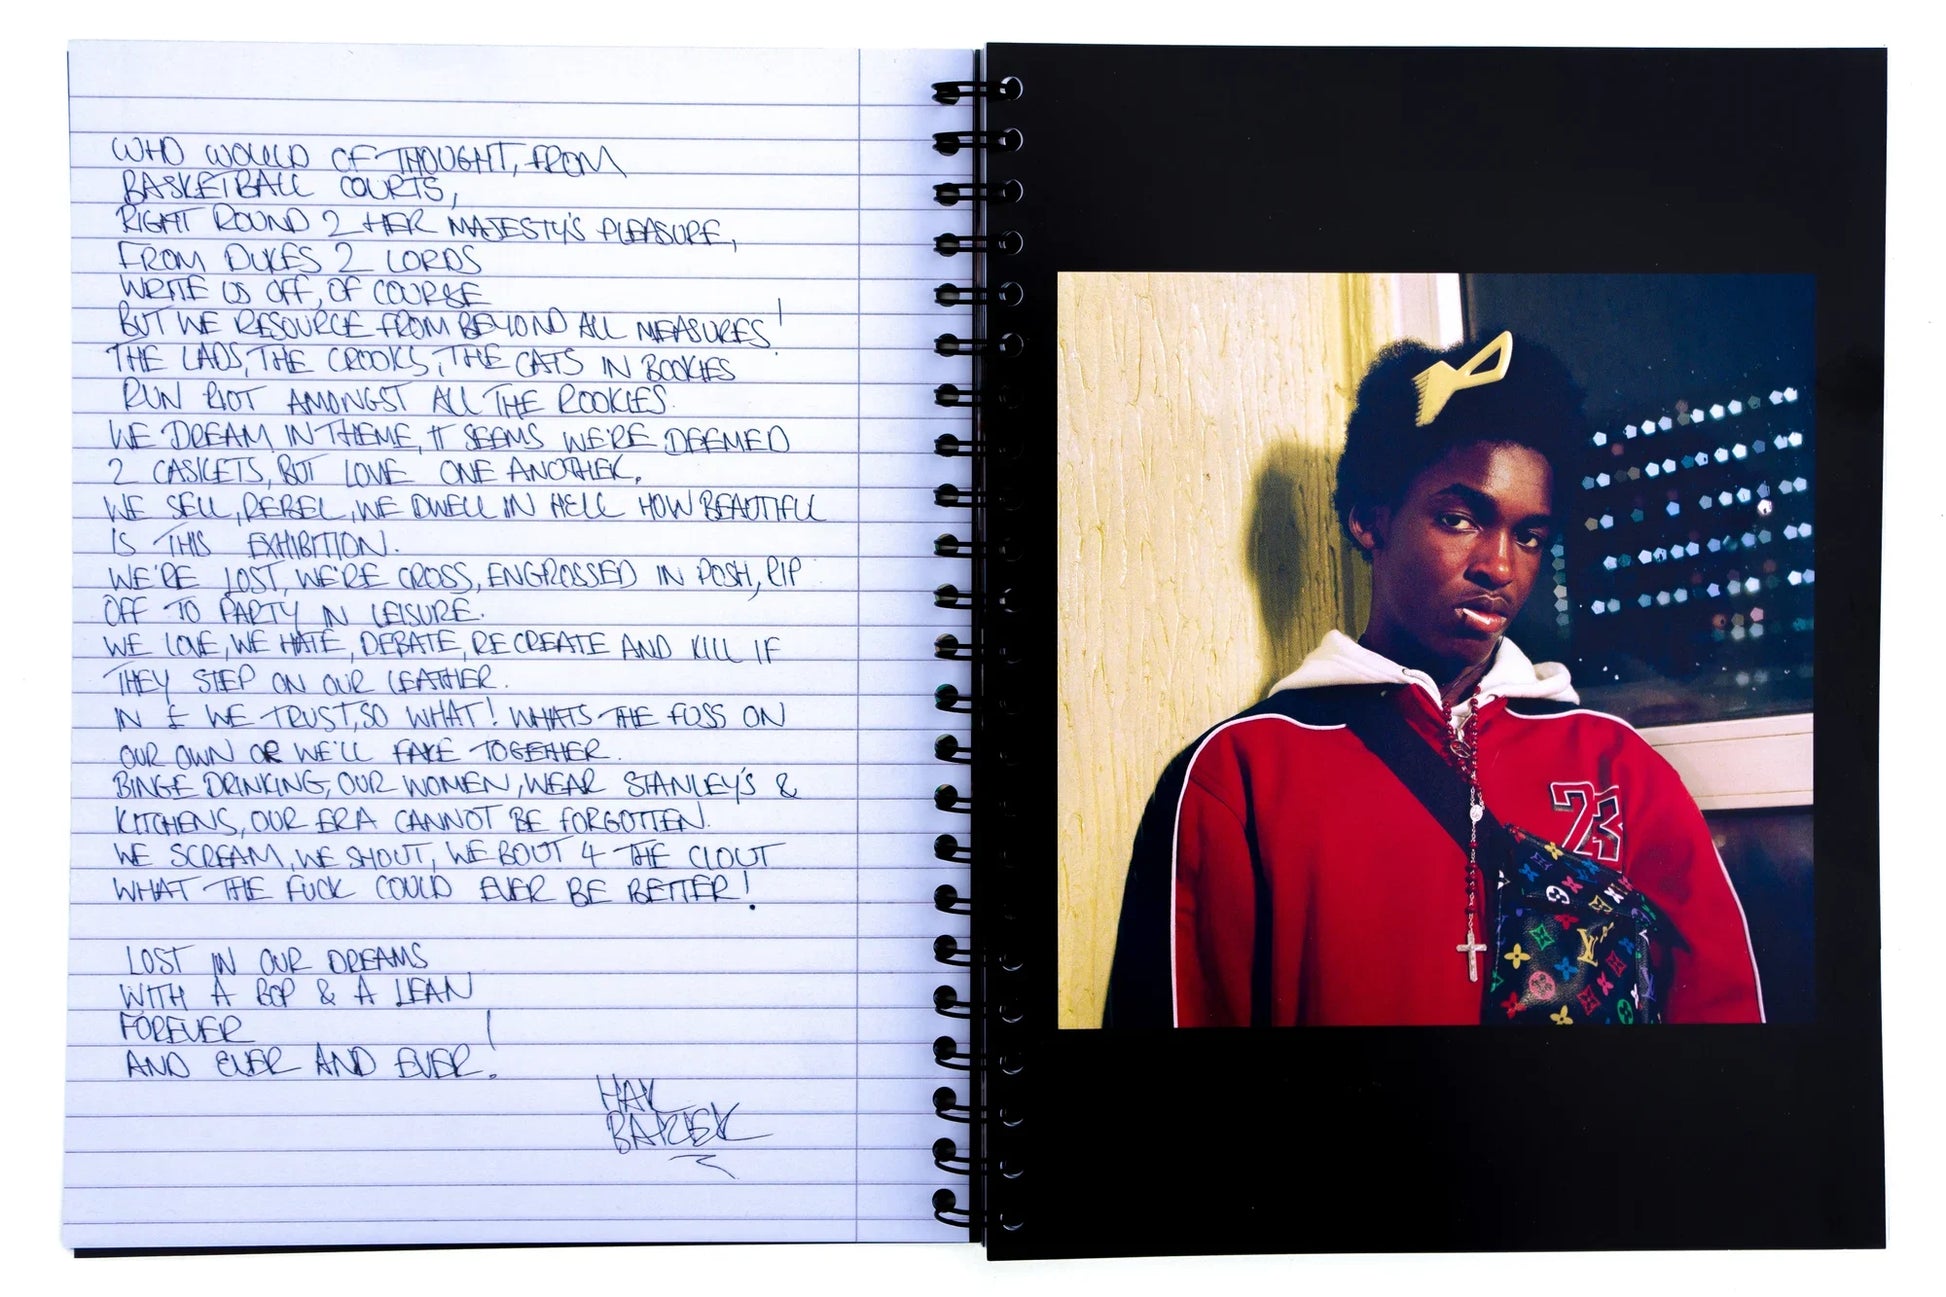 WHO WOULD OF THOUGHT, FROM
BASKETBALL COURTS,
RIGHT ROUND 2 HER MAJESTY'S PLEASURE,
FROM DUKES 2 LORDS
WRITE US OFF, OF COURSE
BUT WE RESOURCE FROM BEYOND ALL MEASURES!
THE LADS, THE CROOKS, THE CATS IN BOOKIES
RUN RIOT AMONGST ALL THE ROOKIES.
WE DREAM IN THEME, IT SEEMS WE'RE DEEMED
2 CASKETS, BUT LOVE ONE ANOTHER.
WE SELL, REBEL, WE DWELL IN HELL HOW BEAUTIFUL
IS THIS EXHIBITION.
WE'RE LOST, WE'RE CROSS, ENGROSSED IN POSH, RIP
OFF TO PARTY IN LEISURE.
WE LOVE, WE HATE, DEBATE, RECREATE AND KILL IF
THEY STEP ON OUR LEATHER.
IN £ WE TRUST, SO WHAT! WHATS THE FUSS ON
OUR OWN OR WE'LL FAKE TOGETHER.
BINGE DRINKING, OUR WOMEN, WEAR STANLEY'S &
KITCHENS, OUR ERA CANNOT BE FORGOTTEN.
WE SCREAM, WE SHOUT, WE BOUT 4 THE CLOUT
WHAT THE FUCK COULD EVER BE BETTER!
LOST IN OUR DREAMS
WITH A BOP & A LEAN
FOREVER
AND EVER AND EVER!
HAK
BAKER
23
LV